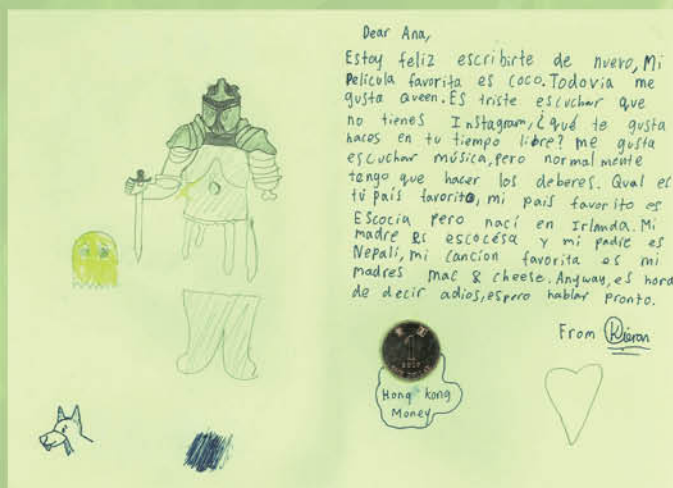 Dear Ana,
Estoy feliz escribirte de nuevo, Mi
Película favorita es coco. Todovia me
gusta Queen. Es triste escuchar que
no tienes Instagram, ¿qué te gusta
haces en tu tiempo libre? me gusta
escuchar música, pero normalmente
tengo que hacer los deberes. Qual es
tú país favorito, mi país favorito es
Escocia pero nací en Irlanda. Mi
madre es escocésa y mi padre es
Nepali, mi cancion favorita es mi
madres mac & cheese. Anyway, es hora
de decir adios, espero hablar pronto.
From Kieran
1
Hong kong
Money